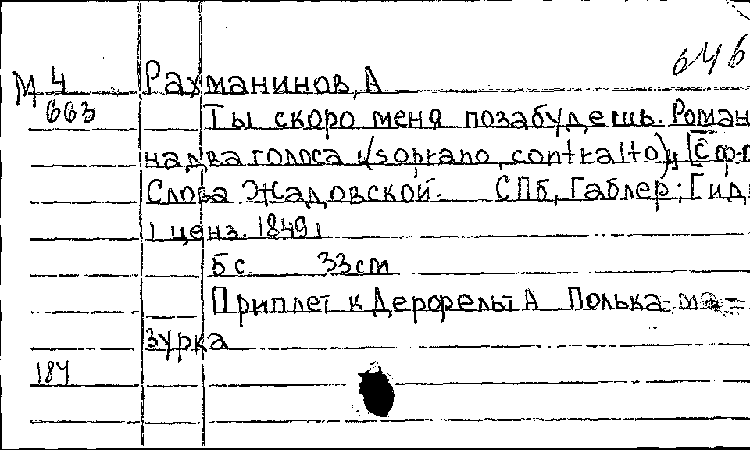 646
М 4 Рахманинов, А
663
Ты скоро меня позабудешь. Роман
на два голоса (soprano, contralto), [С ф.п
Слова Жадовской. СПб, Габлер; Гид
[ценз. 1849]
6 с. 33 cm
Приплет к Дерфельт А Полька-ма=
зурка
184